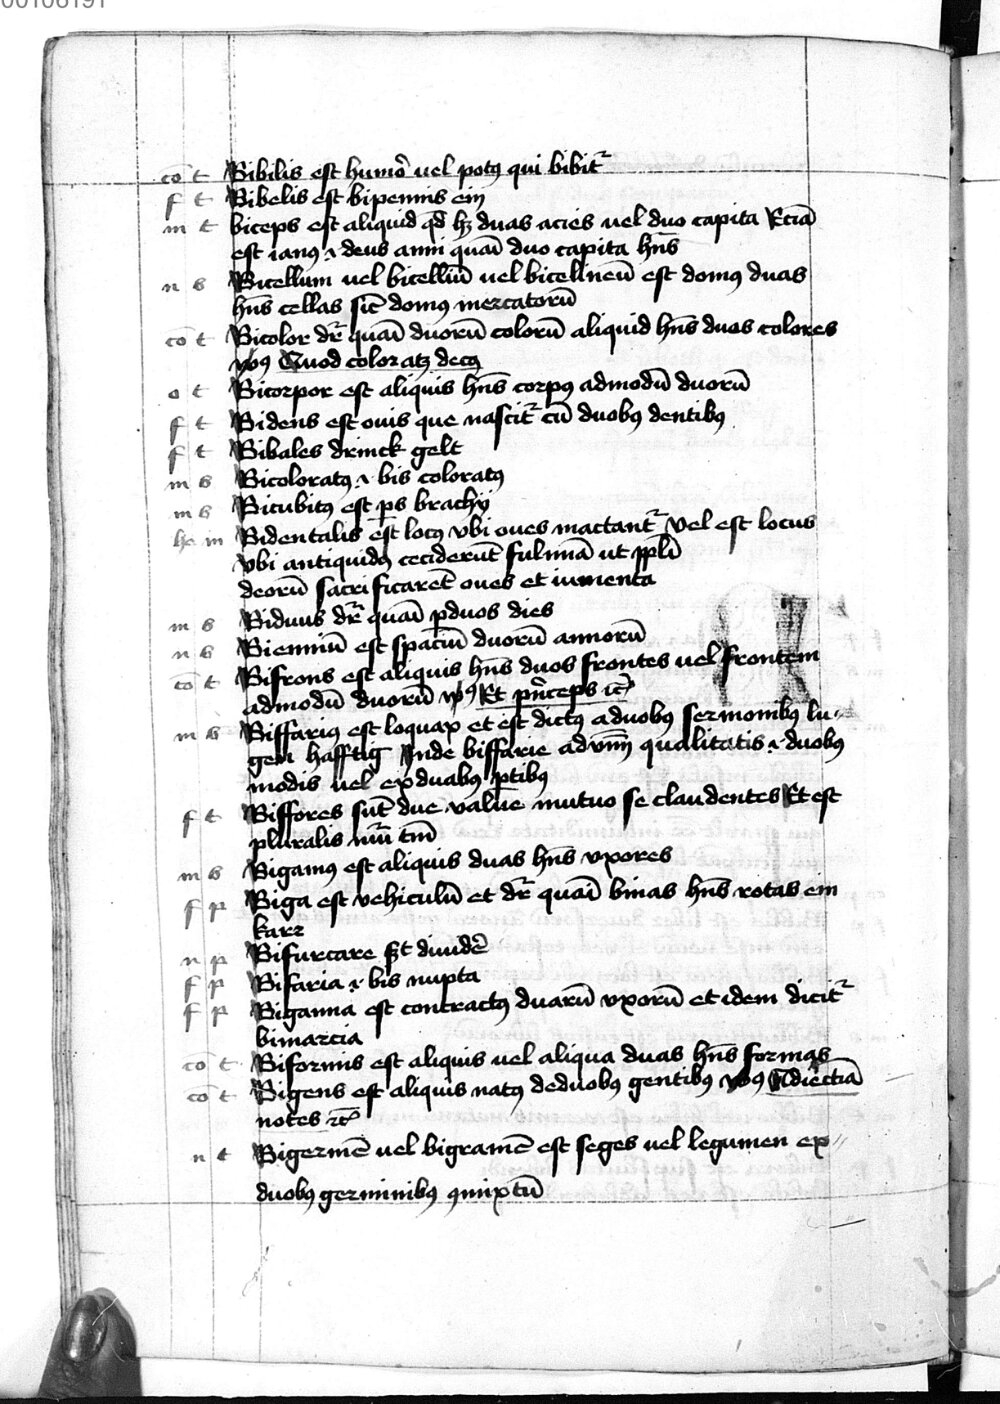 00106191
cō t Bibilis est humō vel potꝰ qui bibit᷑
f t Bibelis est bipennis ein
m t biceps est aliquid qd̄ hꝫ duas acies vel duo capita Etiā
est ianꝰ .i. deus anni quasi duo capita hn̄s
n s Bicellum vel bicelliū vel bicelineū est domꝰ duas
hn̄s cellas sic̄ domꝰ mercatorū
cō t Bicolor dr̄ quasi duorū colorū aliquid hn̄s duos colores
vꝰs Quod color atqꝫ decꝰ
o t Bicorpor est aliquis hn̄s corpꝰ admodū duorū
f t Bidens est ouis que nascit᷑ cū duobꝰ dentibꝰ
f t Bibales drinck gelt
m s Bicoloratꝰ .i. bis coloratꝰ
m s Bicubitꝰ est ꝑs brachij
m Bidentalis est locꝰ vbi oues mactant᷑ Vel est locus
vbi antiquidꝰ ceciderūt fulminā ut ppl̄i
deorū sacrificarēt oues et iumenta
m s Biduus dr̄ quasi ꝑ duos dies
n s Bienniū est spaciū duorū annorū
cō t Bifrons est aliquis hn̄s duos frontes vel frontem
admodū duorū vꝰs Et pn̄ceps rc̄
m s Biffariꝰ est loquax et est dictꝰ a duobꝰ sermonibꝰ lu-
gen hafftig Inde biffarie adv̄m qualitatis .i. duobꝰ
modis vel ex duabꝰ ꝑtibꝰ
f t Biffores sūt due value mutuo se claudentes Et est
pluralis nūi tm̄
m s Bigamꝰ est aliquis duas hn̄s vxores
f p Biga est vehiculū et dr̄ quasi binas hn̄s rotas ein
karr
n p Bifurcare est diuidē
f p Bifaria .i. bis nupta
f p Bigamia est contractꝰ duarū vxorū et idem dicit᷑
bimarcia
cō t Biformis est aliquis vel aliqua duas hn̄s formas
cō t Bigens est aliquis natꝰ de duobꝰ gentibꝰ vꝰs
notes rc̄
n t Bigermē vel bigramē est seges vel legumen ex
duobꝰ germinibꝰ ꝯmixtū